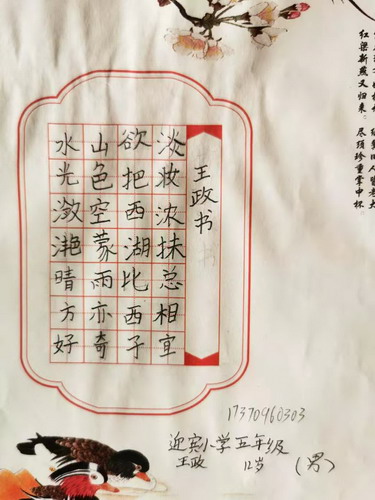 水光潋滟晴方好
山色空蒙雨亦奇
欲把西湖比西子
淡妆浓抹总相宜
王政书
红梁新燕又归来；尽须珍重掌中杯
17370960303
迎宾小学五年级
王政 12岁 (男)